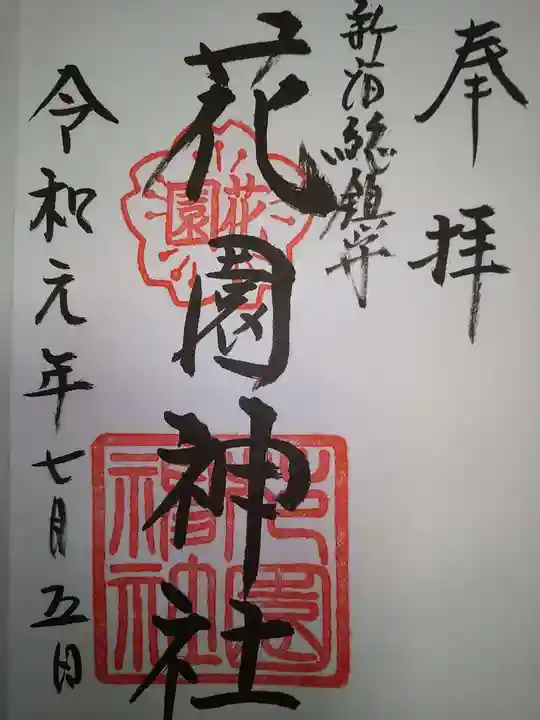 奉拝
新宿総鎮守
花園神社
令和元年七月五日
花園
花園神社